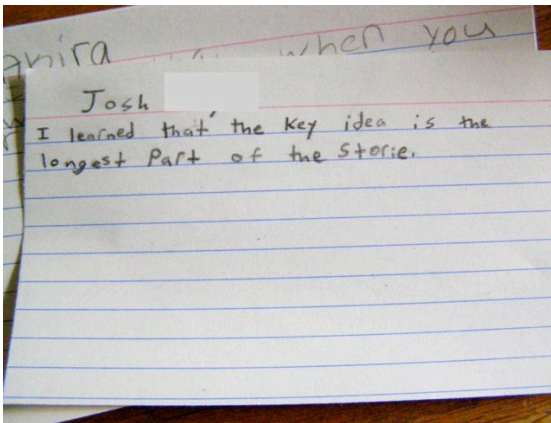 when you
Josh
I learned that the key idea is the
longest Part of the Storie.